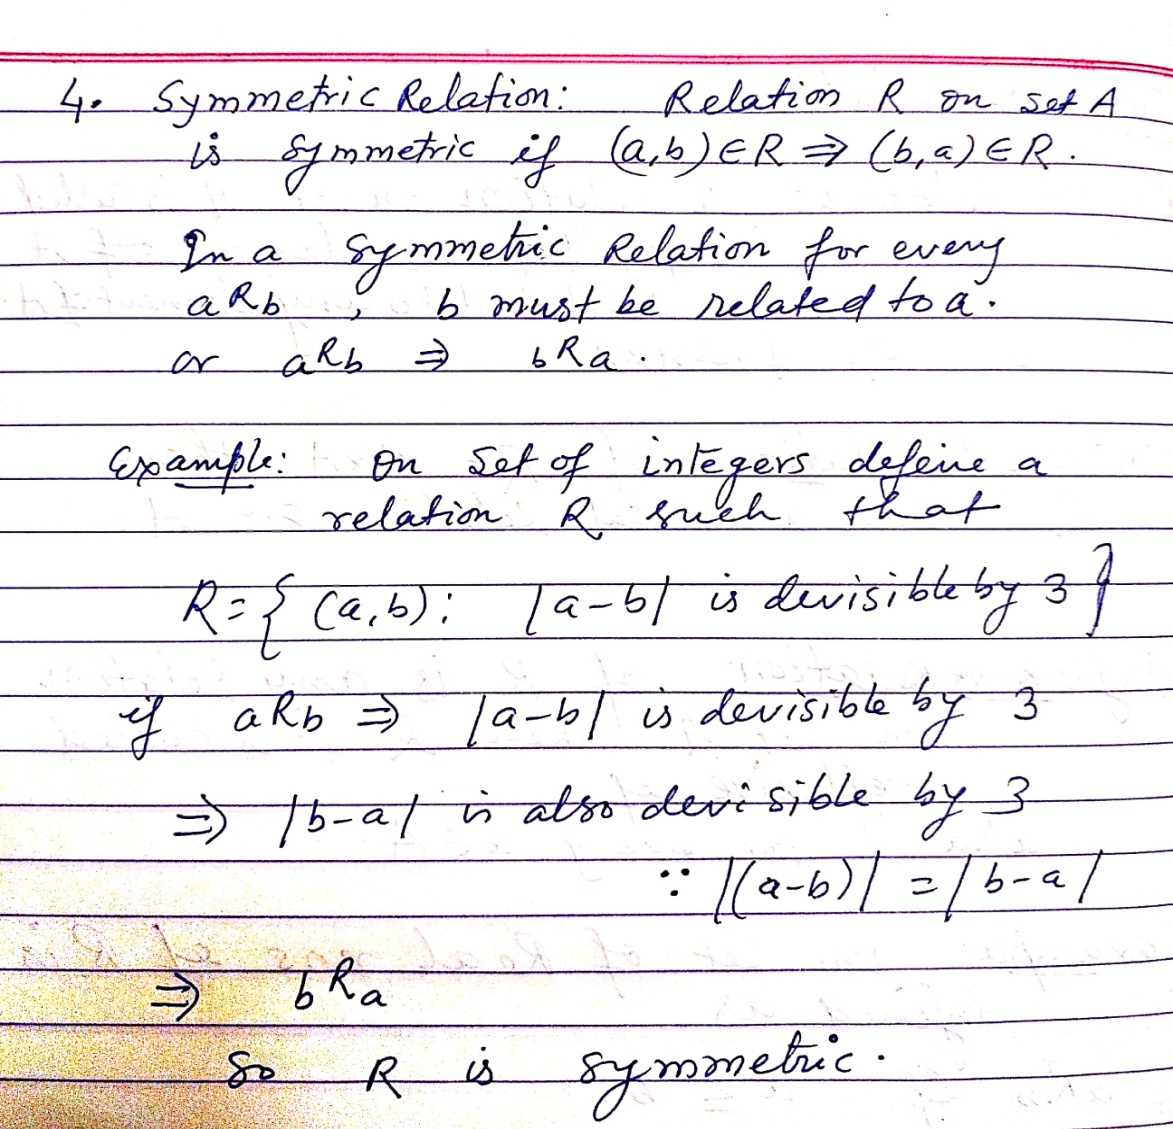 4. Symmetric Relation: Relation R on set A
is symmetric if (a,b) ∈ R ⇒ (b,a) ∈ R.
In a symmetric Relation for every
aRb, b must be related to a.
or aRb ⇒ bRa.
Example: On Set of integers define a
relation R such that
R = { (a,b): |a-b| is devisible by 3 }
if aRb ⇒ |a-b| is devisible by 3
⇒ |b-a| is also devisible by 3
∵ |(a-b)| = |b-a|
⇒ bRa
So R is symmetric.